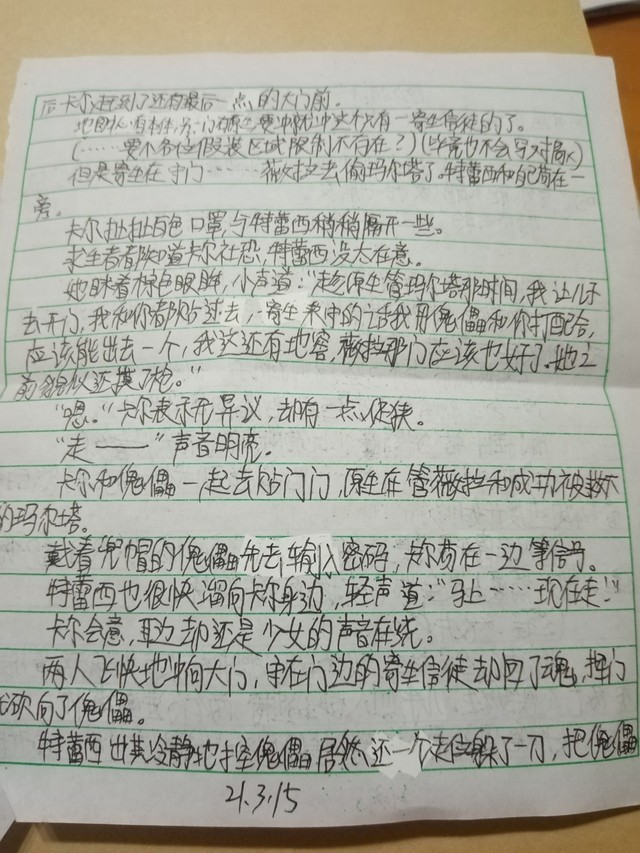 后卡尔赶到了还有最后一点的大门前。
(……要不各位假装区域限制不存在?)(毕竟也不会写对局)
但是寄生在守门……薇拉又去偷玛尔塔了。特蕾西和配荷在一
旁。
卡尔扯扯白色口罩,与特蕾西稍稍隔开一些。
求生者都知道卡尔社恐,特蕾西没太在意。
她眯着棕色眼眸,小声道:“趁原生管玛尔塔那时间,我让
去开门,我和你都贴过去,寄生来守的话我用傀儡和你打配合,
应该能出去一个,我这还有地窖,薇拉那门应该也好了。她之
前貌似还摸了枪。”
“嗯。”卡尔表示无异议,却有一点促狭。
“走——”声音明亮。
卡尔和傀儡一起去贴门,原生在管薇拉和成功被救下
的玛尔塔。
戴着兜帽的傀儡先去输入密码,卡尔荷在一边等信号。
特蕾西也很快溜向卡尔身边,轻声道:“马上……现在走!”
卡尔会意,耳边却还是少女的声音在绕。
两人飞快地冲向大门,守在门边的寄生信徒却回了魂,
砍向了傀儡。
特蕾西出其冷静地控傀儡居然还一个走位躲了一刀,把傀儡
21.3.15